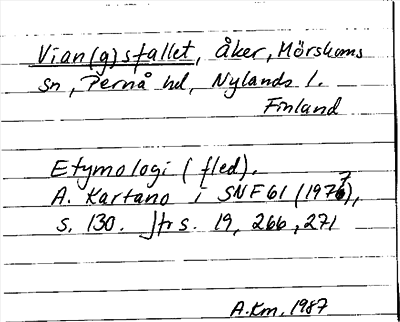 Vian(g)sfallet, Åker, Mörskoms
sn, Pernå hd, Nylands l.
Finland
Etymologi (fled).
A. Kartano i SNF 61 (1977),
s. 130. Jfr s. 19, 266, 271
A.Km. 1987